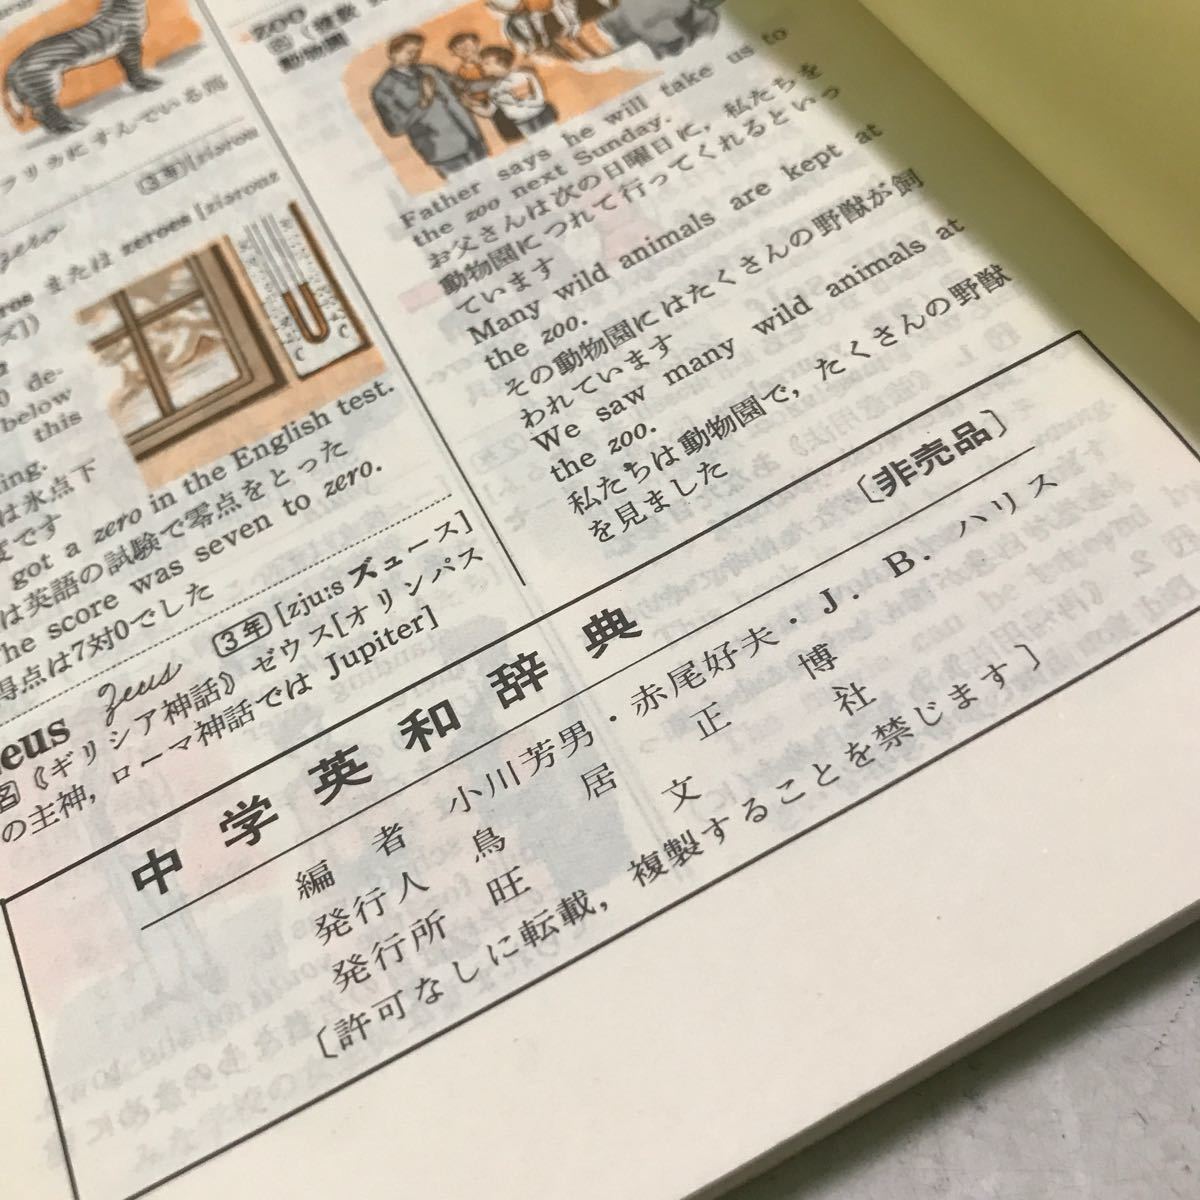 フリカにすんでいる馬
3年 [zíərou
zero
eros または zeroes [zíərouz
ズ])
0 de-
below
this
ning.
は氷点下
度です
got a zero in the English test.
は英語の試験で零点をとった
The score was seven to zero.
得点は7対0でした
eus Zeus 3年 [zju:s ズュース]
名 《ギリシア神話》 ゼウス[オリンパス
の主神, ローマ神話では Jupiter]
zoo
名 (複数
動物園
Father says he will take us to
the zoo next Sunday.
お父さんは次の日曜日に, 私たちを
動物園につれて行ってくれるといっ
ています
Many wild animals are kept at
the zoo.
その動物園にはたくさんの野獣が飼
われています
We saw many wild animals at
the zoo.
私たちは動物園で, たくさんの野獣
を見ました
中学英和辞典 〔非売品〕
編者 小川芳男・赤尾好夫・J. B. ハリス
発行人 鳥居正博
発行所 旺文社
〔許可なしに転載, 複製することを禁じます〕